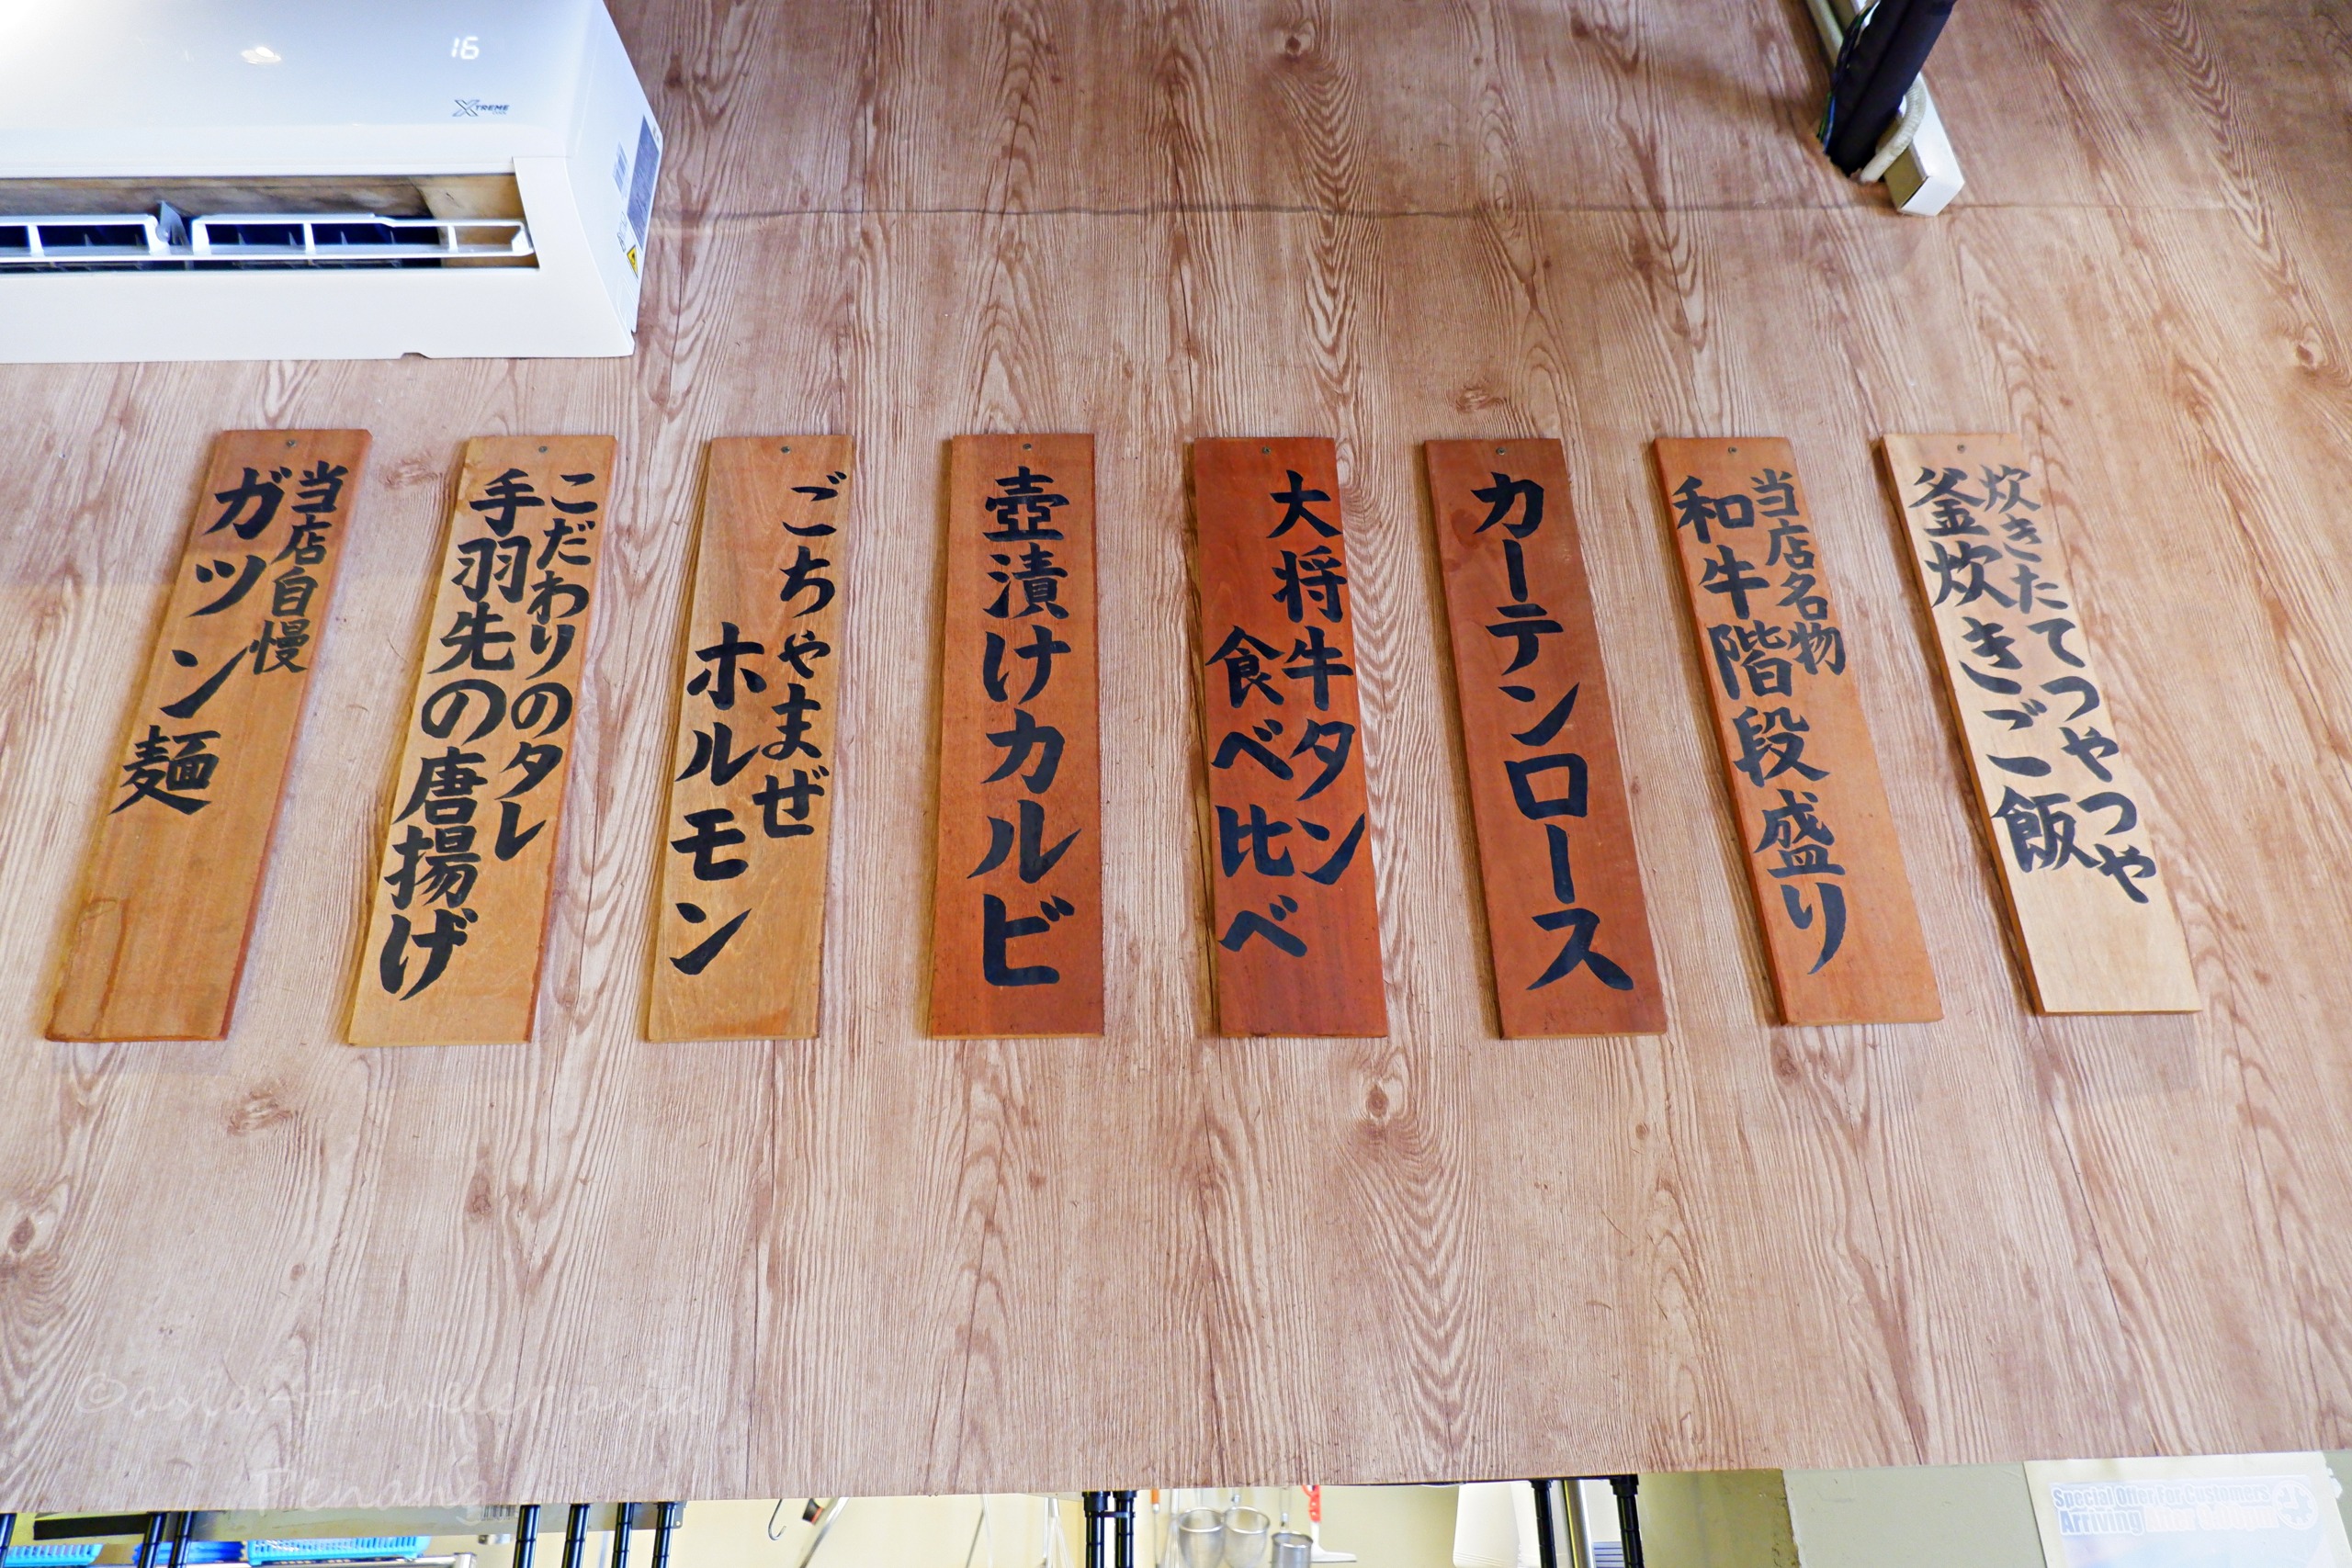 16
XTREME
炊きたてつやつや
釜炊きご飯
当店名物
和牛階段盛り
カーテンロース
大将牛タン
食べ比べ
壺漬けカルビ
ごちゃまぜ
ホルモン
こだわりのタレ
手羽先の唐揚げ
当店自慢
ガツン麺
Penang
Special Offer For Customers
Arriving After